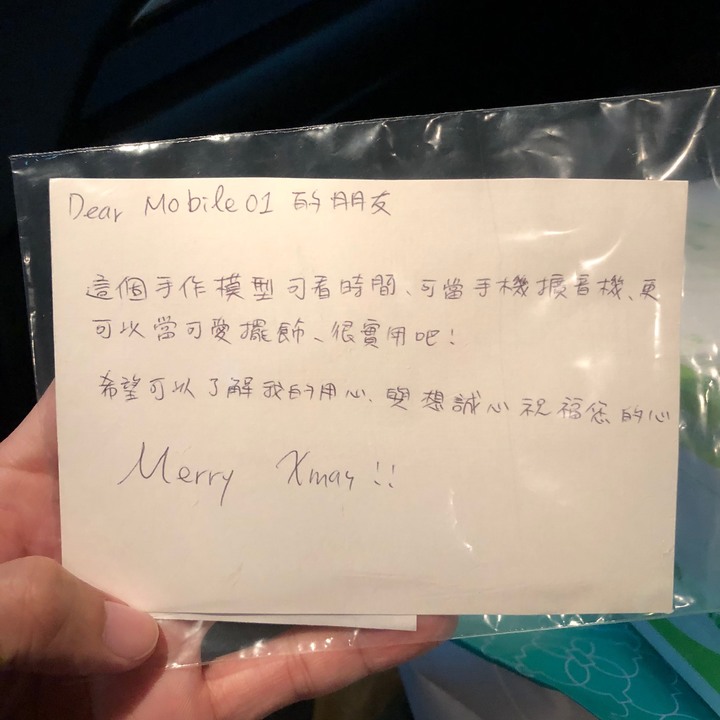 Dear Mobile01 的朋友
這個手作模型可看時間、可當手機擴音機、更
可以當可愛擺飾、很實用吧!
希望可以了解我的用心、與想誠心祝福您的心
Merry Xmas!!